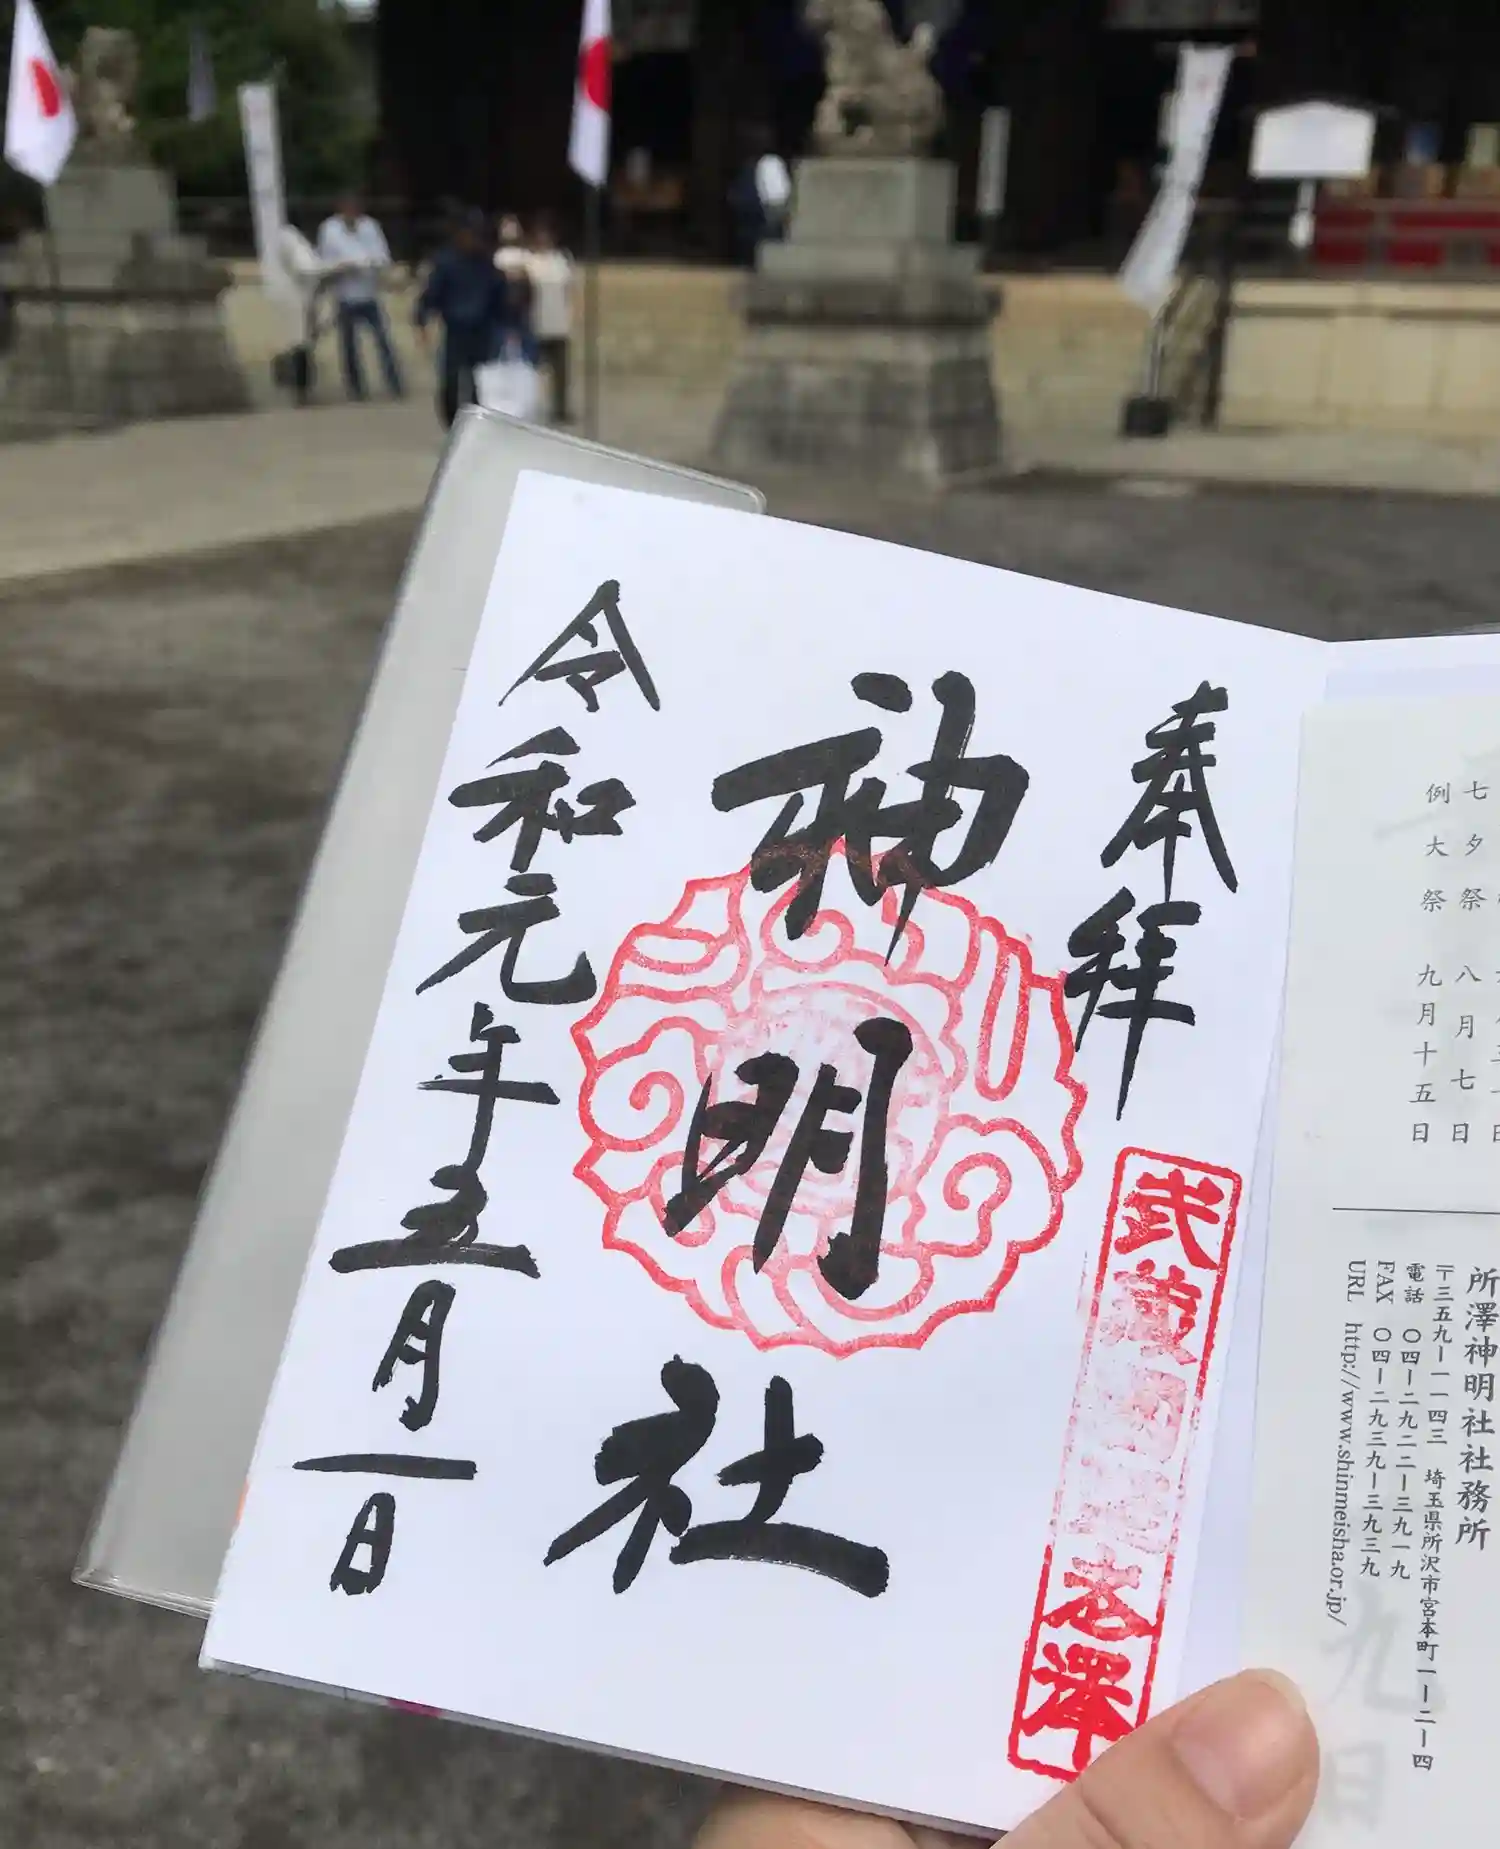 奉拝
神明社
令和元年五月一日
武蔵
澤
七夕祭 八月七日
例大祭 九月十五日
所澤神明社社務所
〒三五九ー一一四三 埼玉県所沢市宮本町一ー二ー四
電話 〇四ー二九二二ー三九一九
FAX 〇四ー二九三九ー三九三九
URL http://www.shinmeisha.or.jp/
九日